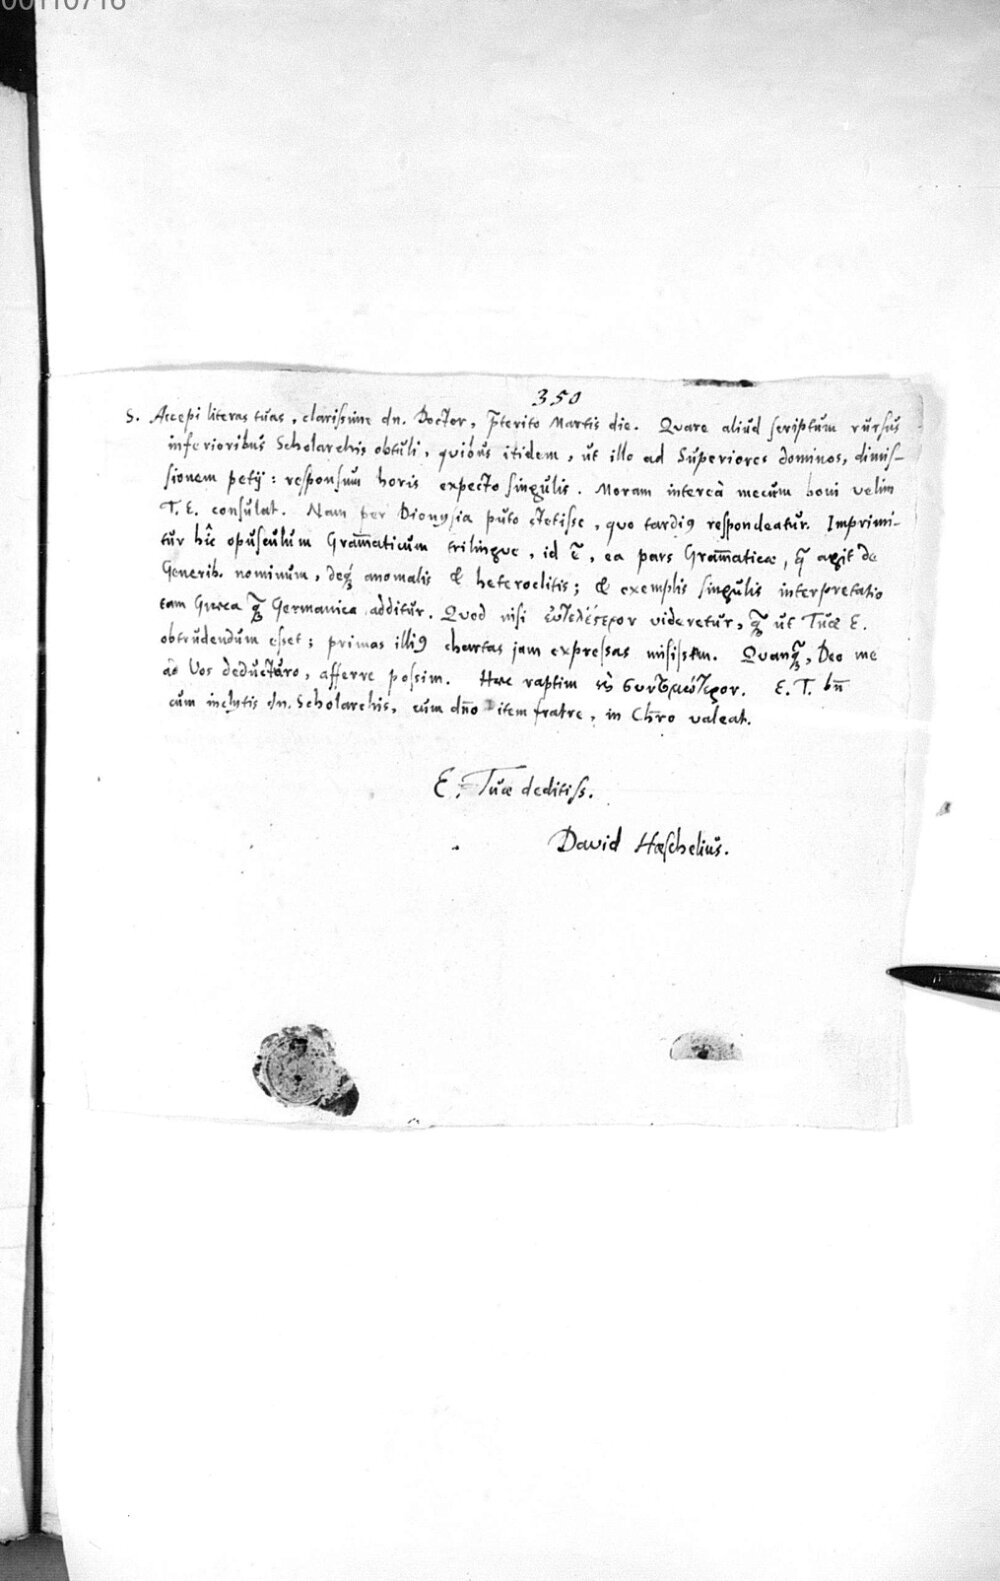 00110716
350
S. Accepi literas tuas, clarissime dn. Doctor, p̄terito Martis die. Quare aliud scriptum rursus
inferioribus Scholarchis obtuli, quibus itidem, ut illo ad Superiores dominos, dimis-
sionem petij: responsum horis expecto singulis. Moram interea mecum boni velim
T. E. consulat. Nam per Dionysia puto stetisse, quo tardiꝰ respondeatur. Imprimi-
tur hîc opusculum Gram̄aticum trilingue, id ē, ea pars Gram̄aticæ, q̄ agit de
Generib. nominum, deq́ꝫ anomalis & heteroclitis; & exemplis singulis interpretatio
tam Græca q̄ꝫ Germanica additur. Quod nisi εὐτελέστερον videretur, q̄ꝫ ut Tuæ E.
obtrudendum esset; primas illiꝰ chartas jam expressas misissem. Quanq̄ꝫ, Deo me
ad Vos deducturo, afferre possim. Hæc raptim καὶ συντομώτερον. E. T. bn̄
cum inclytis dn. Scholarchis, cum dn̄o item fratre, in Chr̄o valeat.
E. Tuæ deditiss.
David Hœschelius.